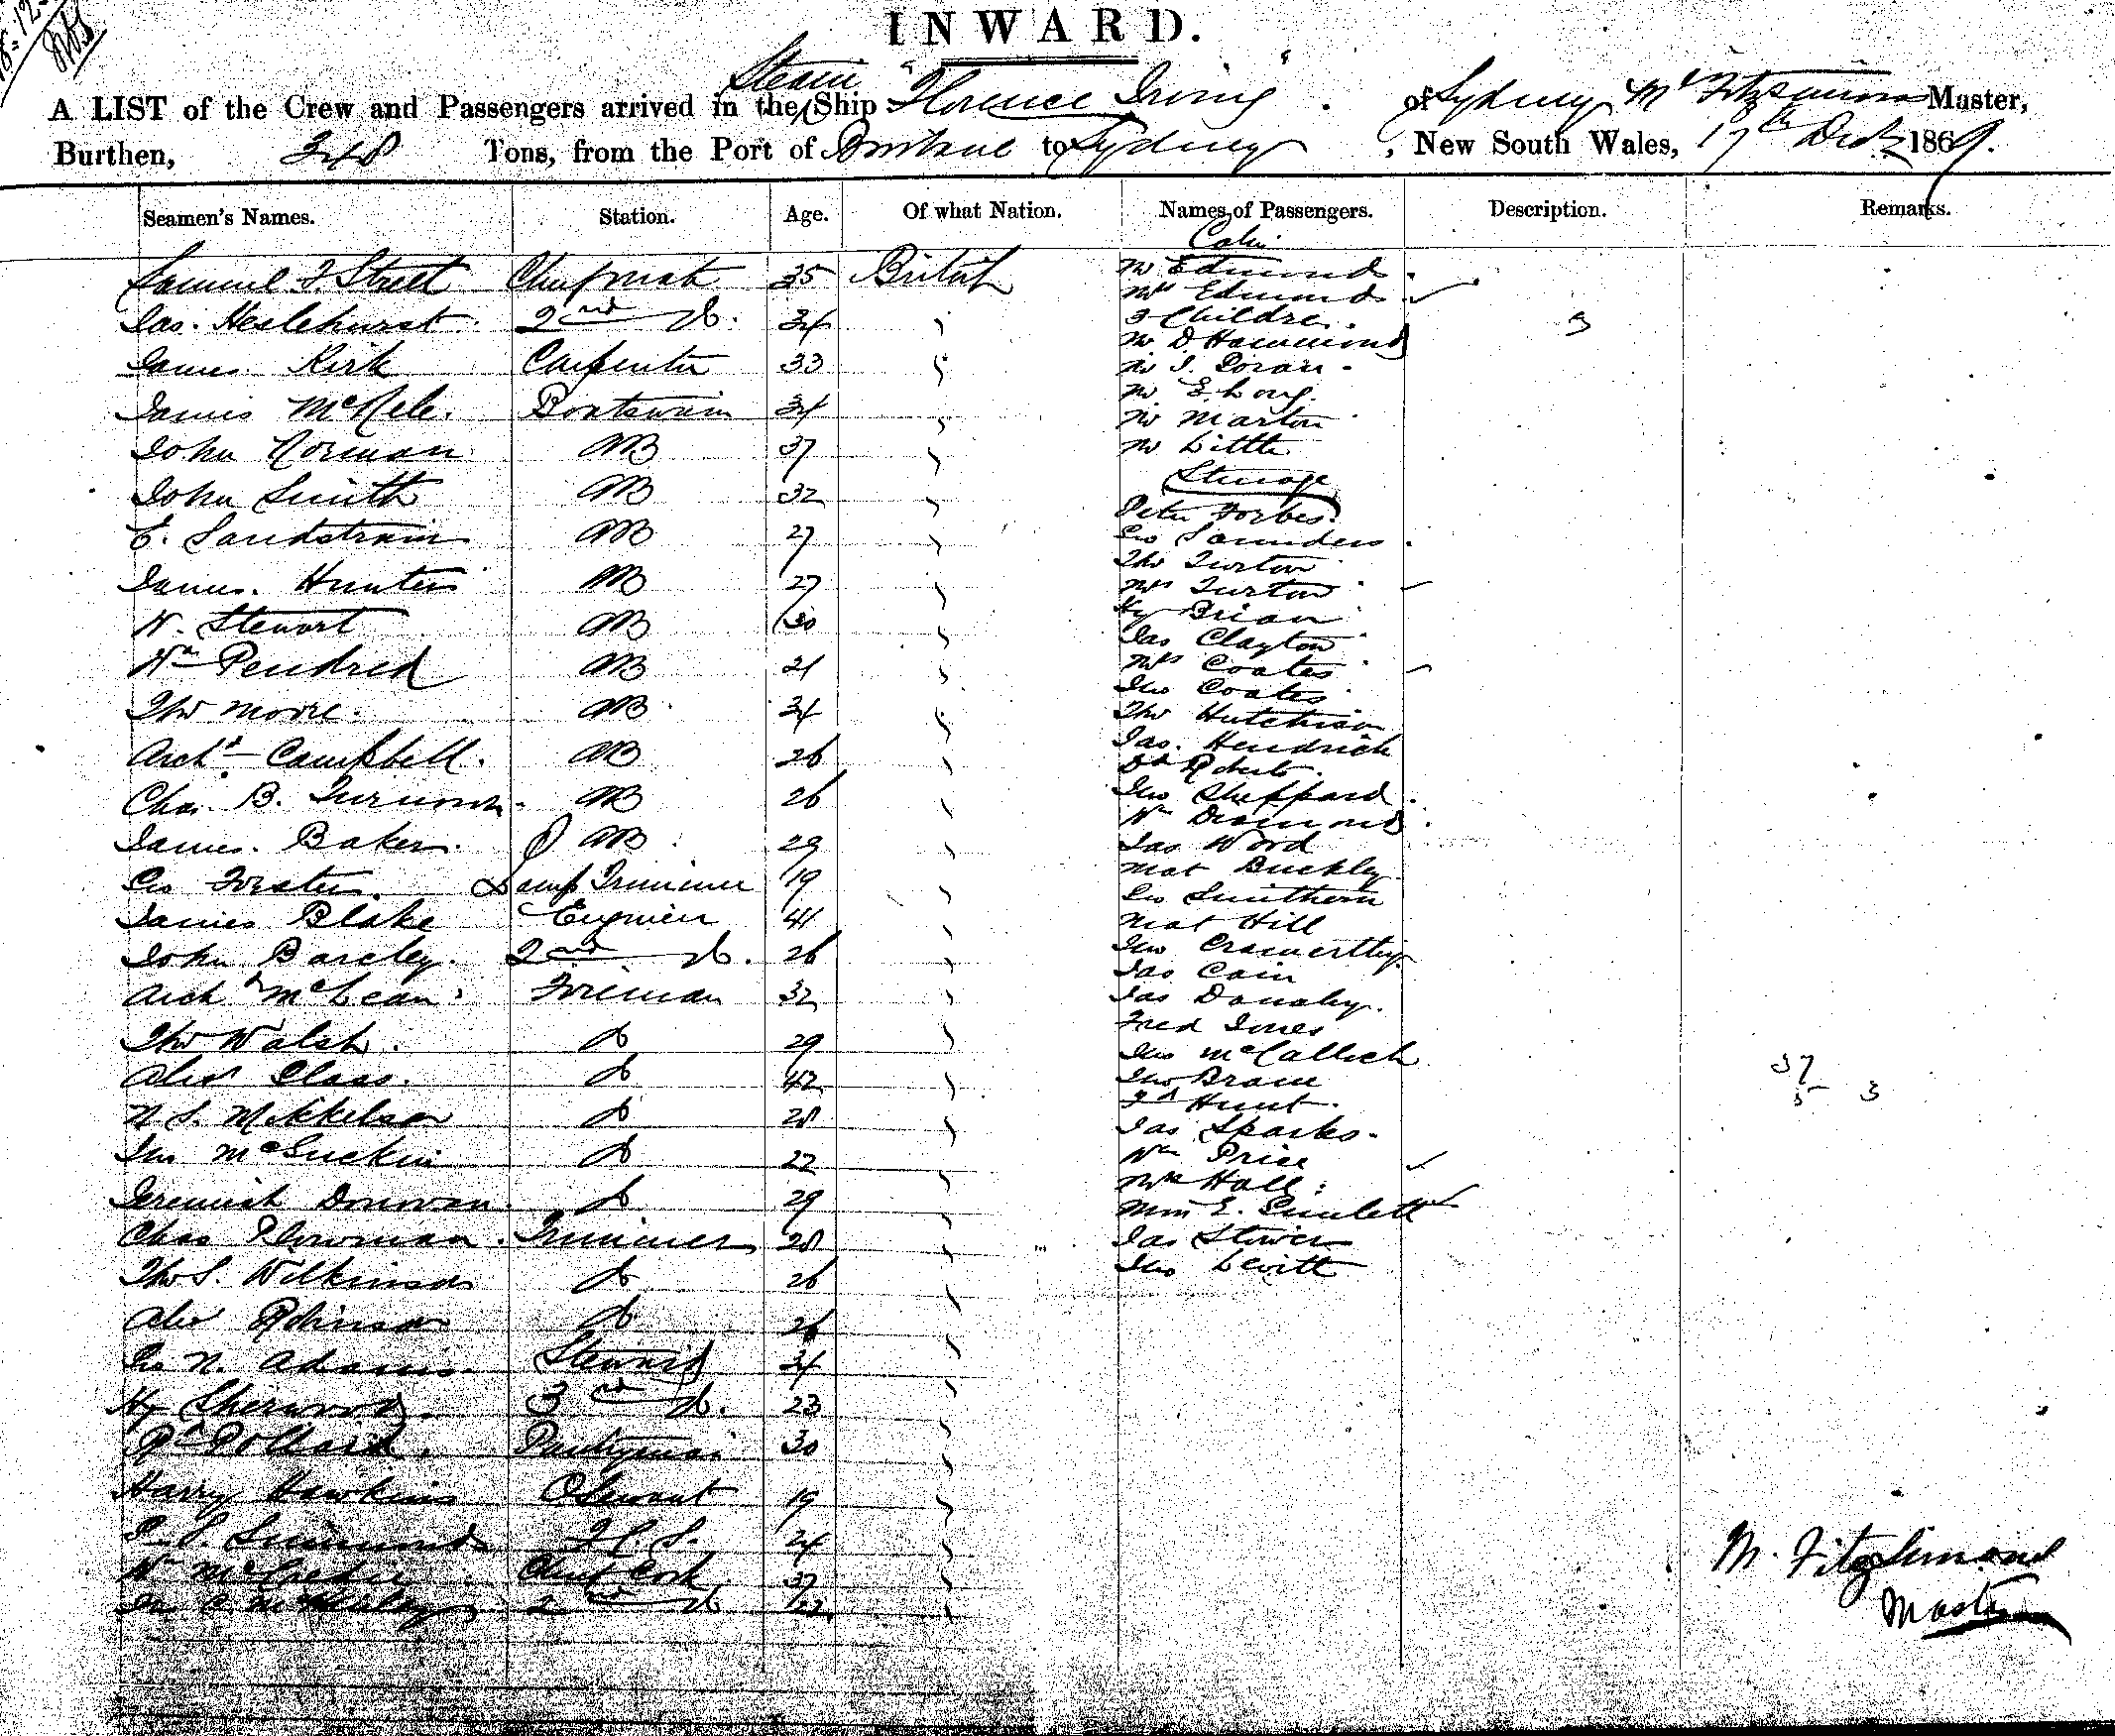 INWARD.
A LIST of the Crew and Passengers arrived in the Steam Ship "Florence Irving" of Sydney, Mr Fitzsimons Master,
Burthen, 348 Tons, from the Port of Brisbane to Sydney, New South Wales, 17th Decr 1869.
Seamen's Names. Station. Age. Of what Nation. Names of Passengers. Description. Remarks.
Samuel J Street Chief mate 35 British
Jas. Heslehurst 2nd Do. 34
James Kirk Carpenter 33
James Boatswain 34
John Norman AB 37
John Smith AB 32
E. Sandstrom AB 27
James Hunter AB 27
W. Stewart AB 30
Wm Pendred AB 21
Thos Moore AB 34
Archd Campbell. AB 26
Chas. B. AB 26
James. Baker. AB 29
Geo Forster. Lamp Trimmer 19
James Blake Engineer 41
John Barcley. 2nd Do. 26
Archd McLean Fireman 32
Thos Walsh. Do 29
Alexr Do 42
N. S. Mikkelson Do 28
Jno McGuckin Do 22
Jeremiah Donovan. Do 29
Chas Plowman. Trimmer 28
Thos S. Wilkinson Do 26
Alex Robinson Do 26
Geo N. Adams. Steward 34
Hy Sherwood. 3rd Do. 23
Rd Pollard. Pantryman 30
Harry Hawkins O Servant 19
Simmonds F.C.S. 24
Wm Chief Cook 37
2nd Do 22
Cabin
Mr Edmond
Mrs Edmond
3 Children. 3
Mr D Hammond
Mr J. Doran
Mr E. Long.
Mr Marton
Mr Little
Steerage
Peter Forbes.
Geo Saunders
Thos Turton
Mrs Turton
Hy Brian
Jas Clayton
Mrs Coates
Jno Coates
Thos Hutchison
Jas. Hendrick
Dd Roberts.
Jno Sheppard
Wm Diamond
Jas Wood
Mat Buckley
Geo Smithern
Mat Hill
Jno
Jas Cain
Jas Donahy.
Fred Jones
Jno McCalloch
Jno Brain
Fd Hunt.
Jas Sparks.
Wm Price
Mrs Hall
Miss E.
Jas Stower
Jno Levitt
37
5 3
M. Fitzsimons
Master